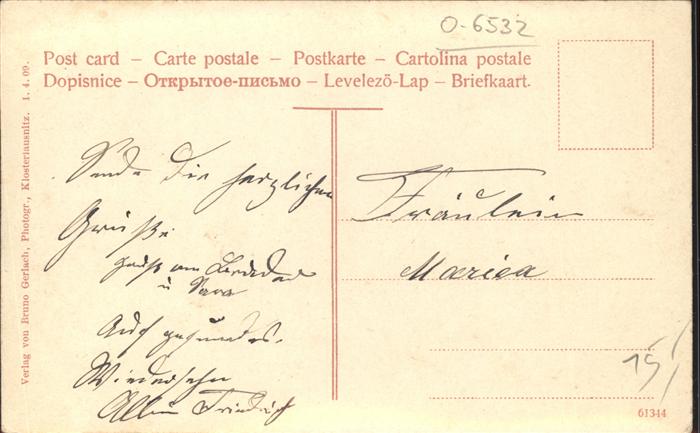 O-6532
Post card – Carte postale – Postkarte – Cartolina postale
Dopisnice – Открытое-письмо – Levelező-Lap – Briefkaart.
Verlag von Bruno Gerlach, Photogr., Klosterlausnitz. 1. 4. 09.
Sende die herzlichen
Grüße
u
Auf gesundes
Wiedersehn
Friedrich
Fräulein
Mariea
15
61344